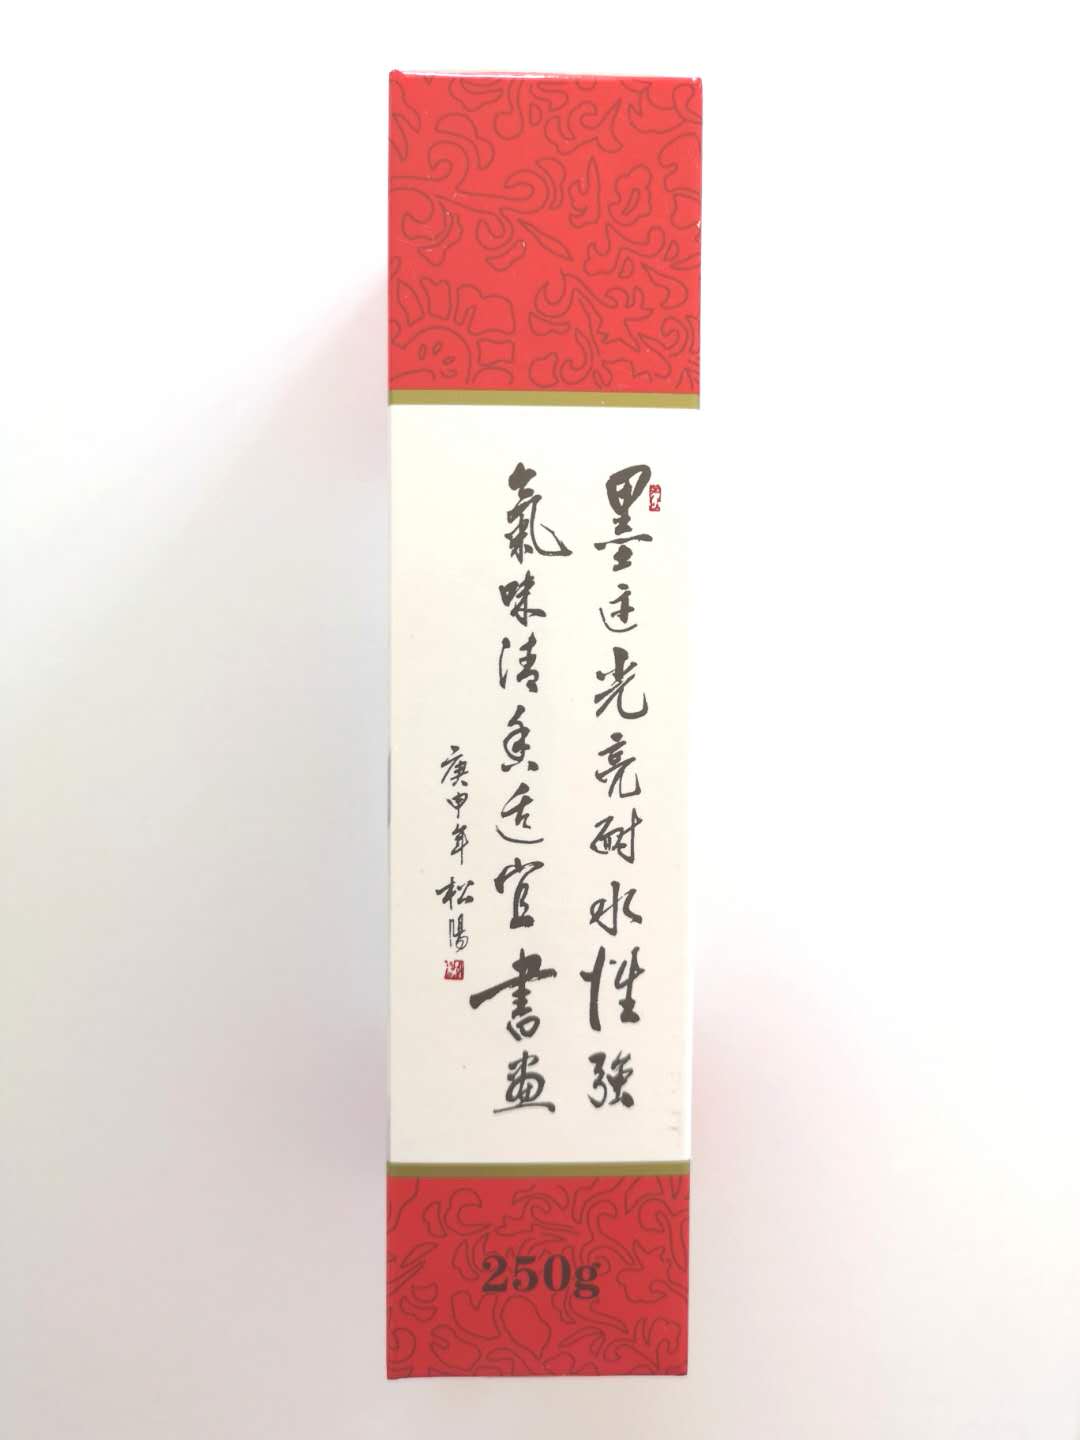 墨迹光亮耐水性強
氣味清香适宜書畫
庚申年松陽
250g